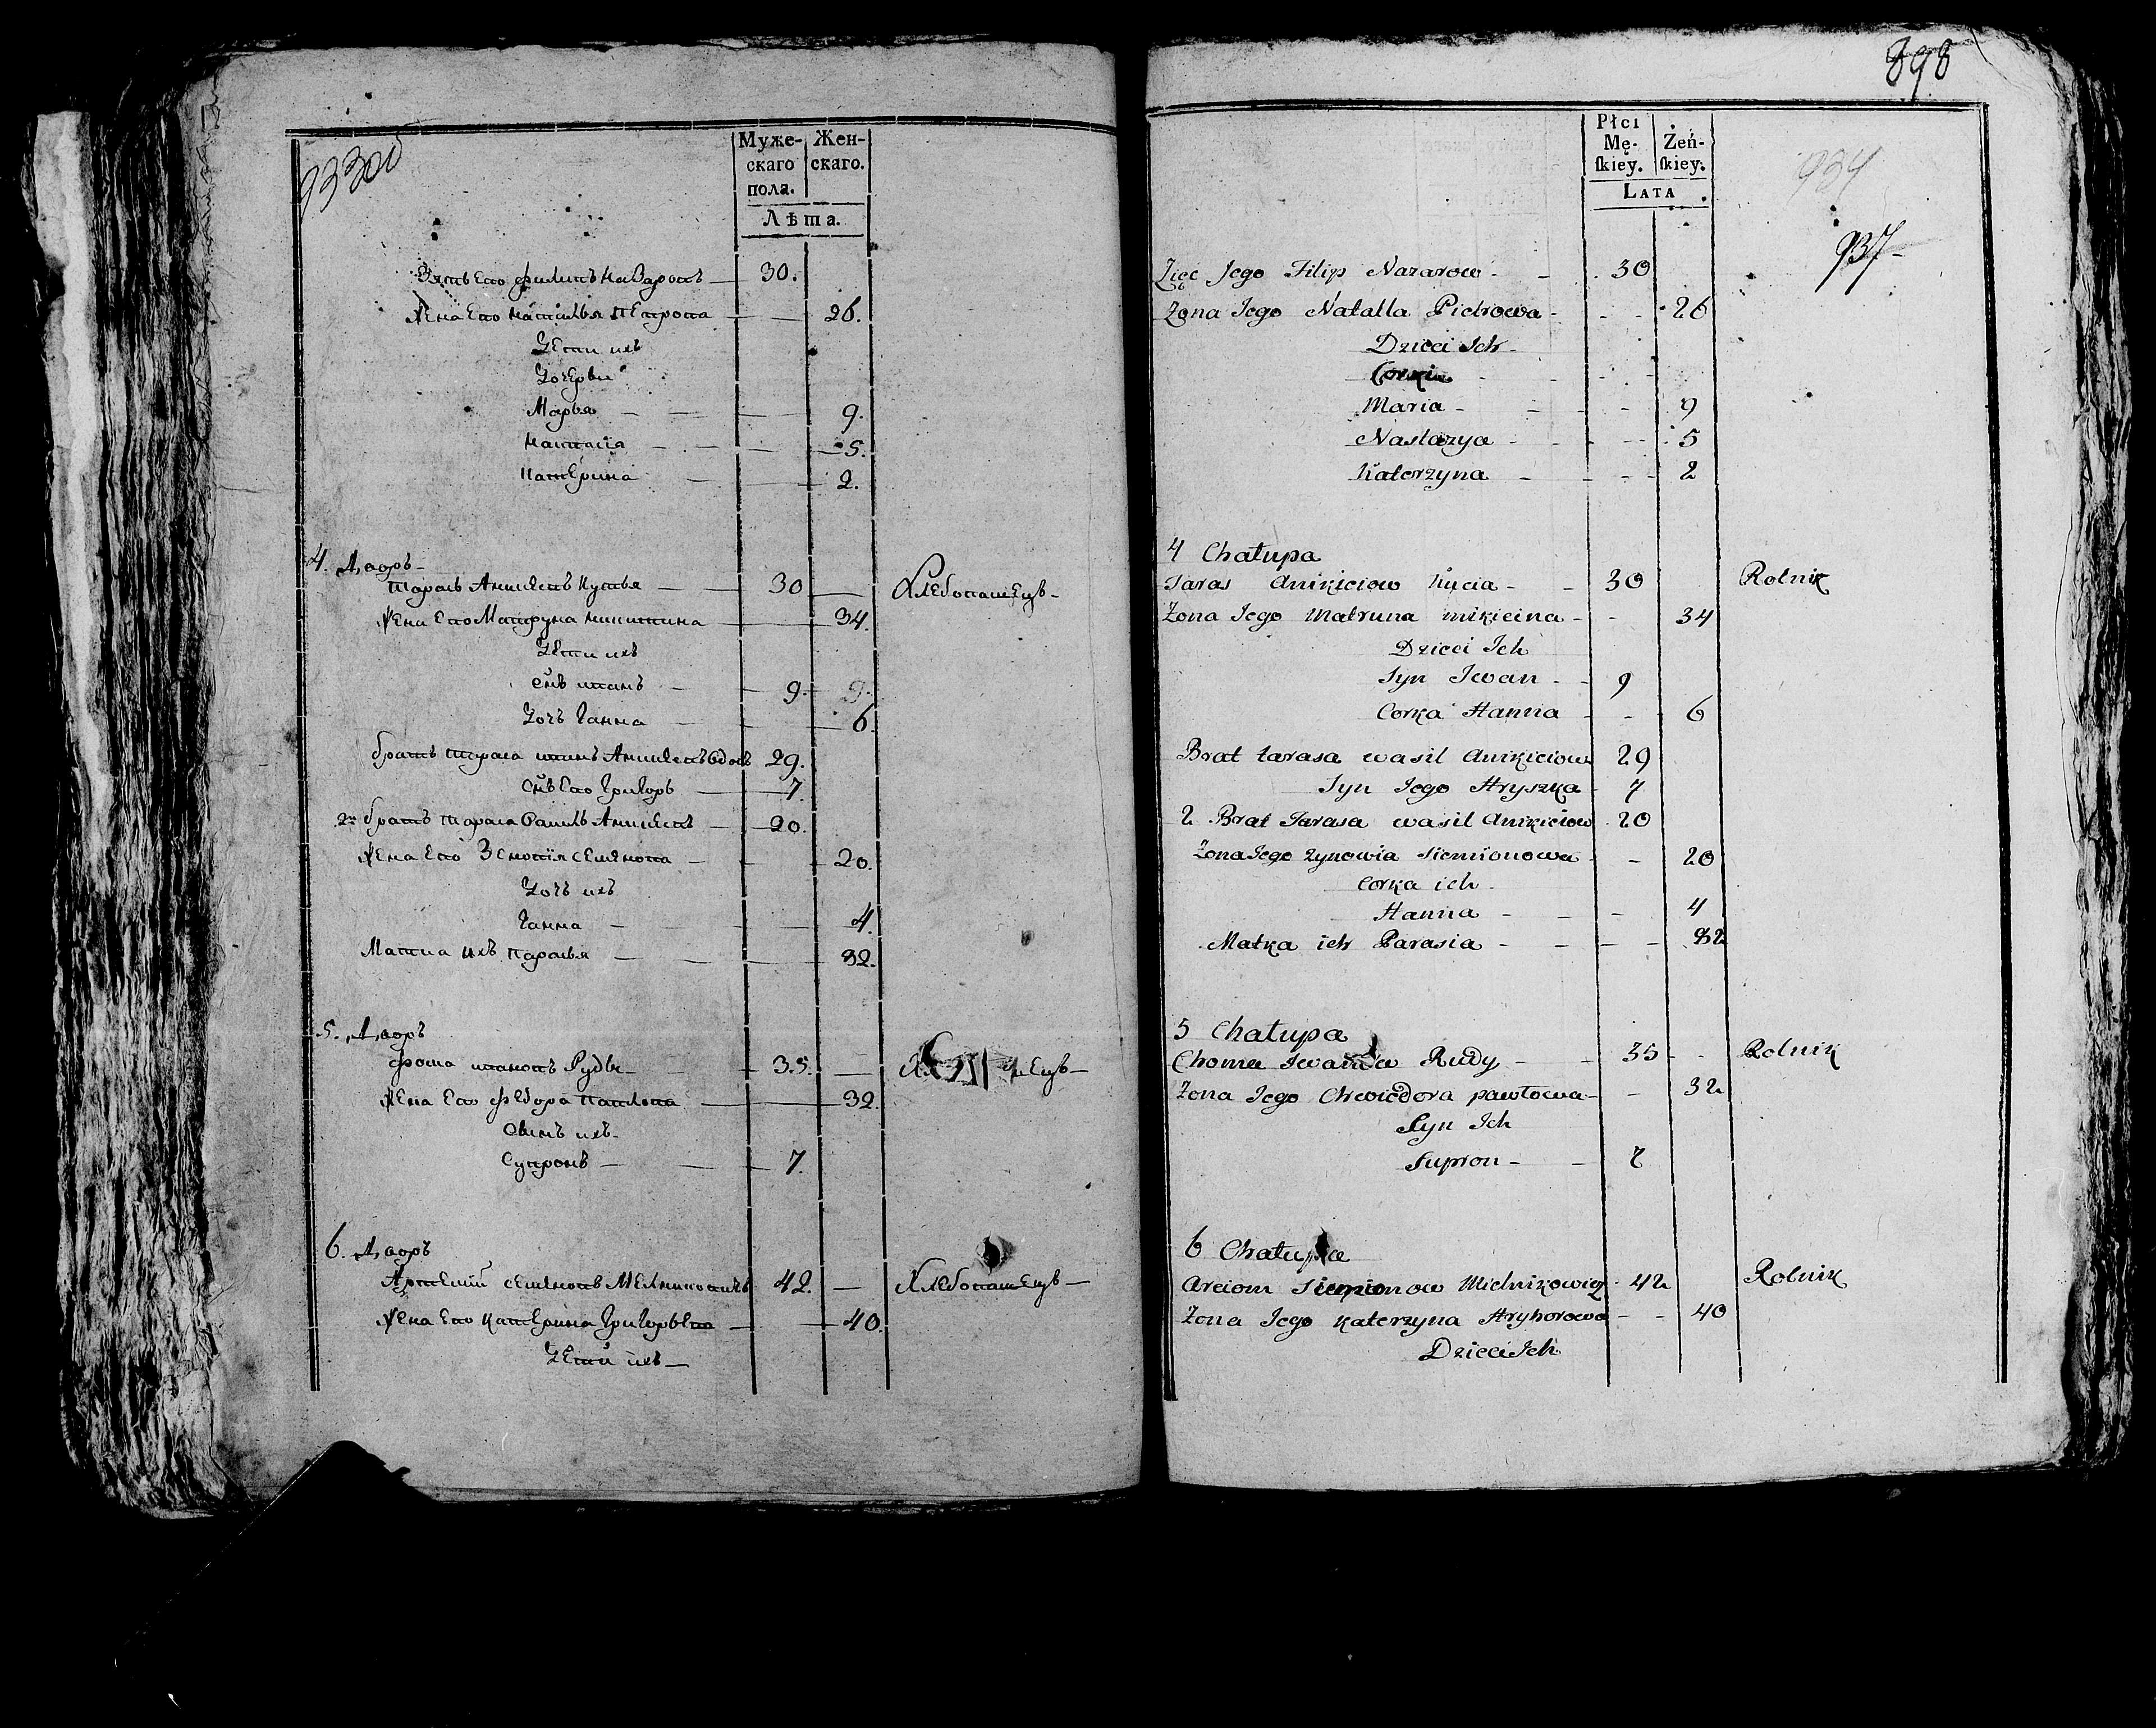 933 об
Муже-скаго пола. Жен-скаго.
Лѣта.
Зять Его филипъ Назаровъ — 30.
Жена Его наталья пЕтрова — — 26.
дЕти ихъ
дочЕри
Марья — — — 9.
настасїя — — — 5.
катЕрина — — 2.
4. дворъ
тарасъ Аникѣевъ Кутья — 30 — хлЕбопашЕцъ —
Жена Его Матруна никитина — 34.
дЕти ихъ
снъ иванъ — 9. 9.
дочь Ганна — 6.
братъ тараса Аникѣевъ вдовъ 29.
снъ Его Григоръ — 7.
2й братъ тараса Василь Аникѣевъ — 20.
Жена Его Зеновїя сЕмЕнова — 20.
дочь ихъ
Ганна — 4.
Матка ихъ парасья — 82.
5. дворъ
фома ивановъ Руды — 35. —
Жена Его фЕдора павлова — 32.
сынъ ихъ
Супронъ — 7.
6. дворъ
АртЕмїй сЕмЕновъ МЕлниковичъ 42. — хлЕбопашЕцъ —
Жена Его катЕрина ГригорьЕва — 40.
дЕти ихъ —
898
Płci Mę-ſkiey. Żeń-ſkiey.
LATA
934
937
Zięc Jego Filip Nazarow - - 30
Zona Jego Natalla Pietrowa - - - 26
Dzieci Ich -
Corki
Maria - - - - 9
Nastazya - - - 5
Katerzyna - - - - 2
4 Chałupa
Taras Anikiciow Kucia - - 30 Rolnik
Zona Jego Matruna mikicina - - 34
Dzieci Ich
Syn Iwan - - 9
Corka Hanna - - 6
Brat tarasa wasil Anikiciow 29
Syn Jego Hryszka - 7
2 Brat Tarasa wasil Anikiciow 20
Zona Jego zynowia Siemionowa - - 20
Corka ich -
Hanna - - - 4
Matka ich Parasia - - - - 82
5 Chałupa
Choma Iwanow Rudy - - 35 - - Rolnik
Zona Jego Chwiedora pawłowa - - 32
Syn Ich
Supron - - 7
6 Chałupa
Arciom Siemionow Mielnikowicz - 42 Rolnik
Zona Jego Katerzyna Hryhorowa - - 40
Dzieci Ich